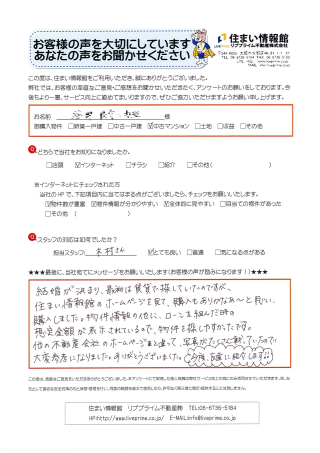 お客様の声を大切にしています
あなたの声をお聞かせください
住まい情報館
リブプライム不動産株式会社
この度は、住まい情報館をご利用いただき、誠にありがとうございました。
弊社では、お客様の率直なご意見・ご感想をお聞かせいただきたく、アンケートのお願いをしております。今
後もより一層、サービス向上に勤めてまいりますので、ぜひご協力いただけますようお願い申し上げます。
お名前 様
御購入物件 □新築一戸建 □中古一戸建 ☑中古マンション □土地 □収益 □その他
Q どちらで当社をお知りになりましたか。
□店頭 ☑インターネット □チラシ □紹介 □その他( )
※インターネットにチェックされた方
当社のHPで、下記項目内に当てはまる点がございましたら、チェックをお願いします。
☑物件数が豊富 ☑物件情報が分かりやすい ☑全体的に見やすい □目当ての物件があった
□その他 ( )
Q スタッフの対応は如何でしたか?
担当スタッフ 木村さん ☑とても良い □普通 □気になる点がある
★★★最後に、当社宛てにメッセージをお願いいたします(お客様の声が励みになります!)★★★
結婚が決まり、最初は賃貸で探していたのですが、
住まい情報館のホームページを見て、購入もありかなぁ〜と思い、
購入しました。物件情報の他に、ローンを組んだ時の
想定金額が表示されているので、物件を探しやすかったです。
他の不動産会社のホームページと違って、写真がたくさん載っていたので
大変参考になりました。ありがとうございました。
住まい情報館 リブプライム不動産㈱ TEL:06-6736-5184
HP:http://www.liveprime.co.jp/ E-MAIL:info@liveprime.co.jp